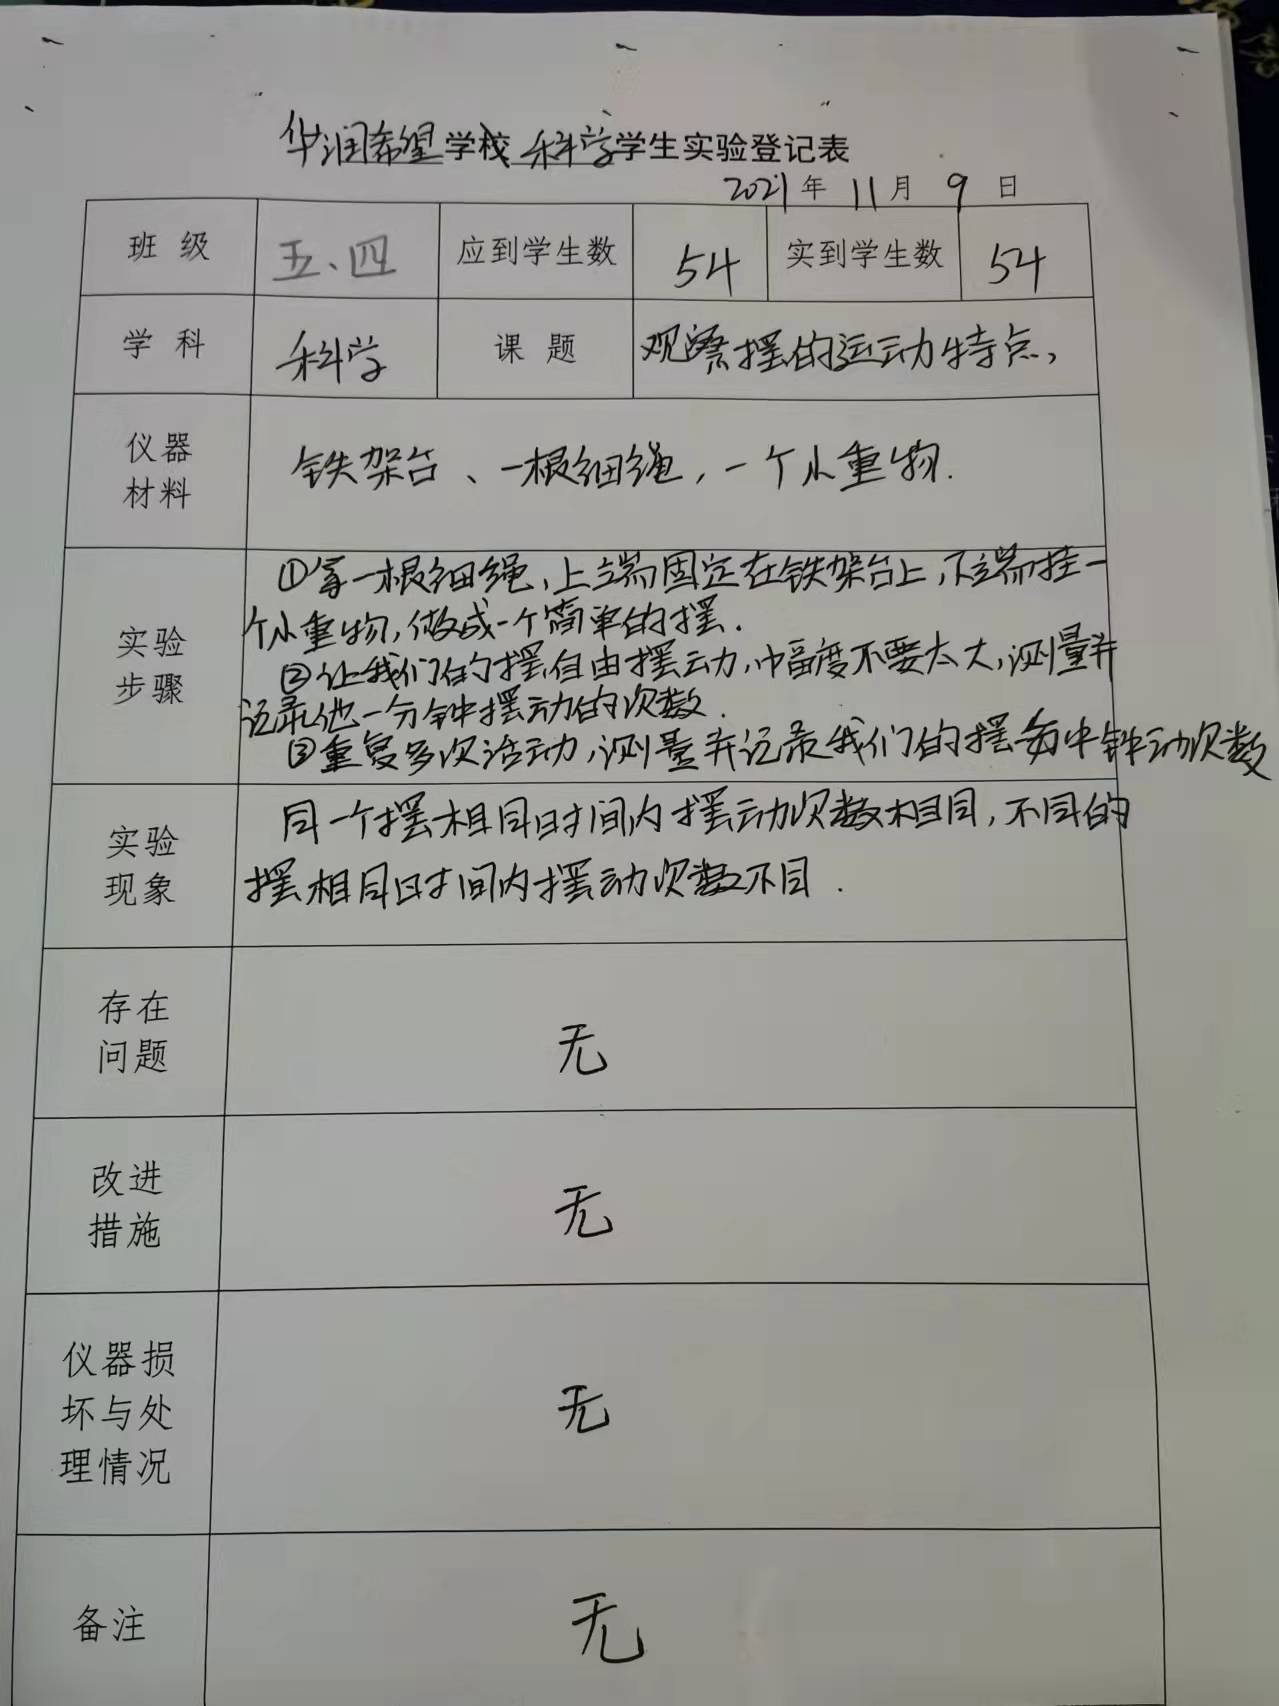 华润希望学校 科学学生实验登记表
2021年 11月 9日
班 级 五、四 应到学生数 54 实到学生数 54
学 科 科学 课 题 观察摆的运动特点,
仪器
材料
铁架台、一根细绳,一个小重物.
实验
步骤
①拿一根细绳,上端固定在铁架台上,下端挂一
个小重物,做成一个简单的摆.
②让我们的摆自由摆动,幅度不要太大,测量并
记录他一分钟摆动的次数.
③重复多次活动,测量并记录我们的摆每中钟动次数
实验
现象
同一个摆相同时间内摆动次数相同,不同的
摆相同时间内摆动次数不同.
存在
问题
无
改进
措施
无
仪器损
坏与处
理情况
无
备注
无